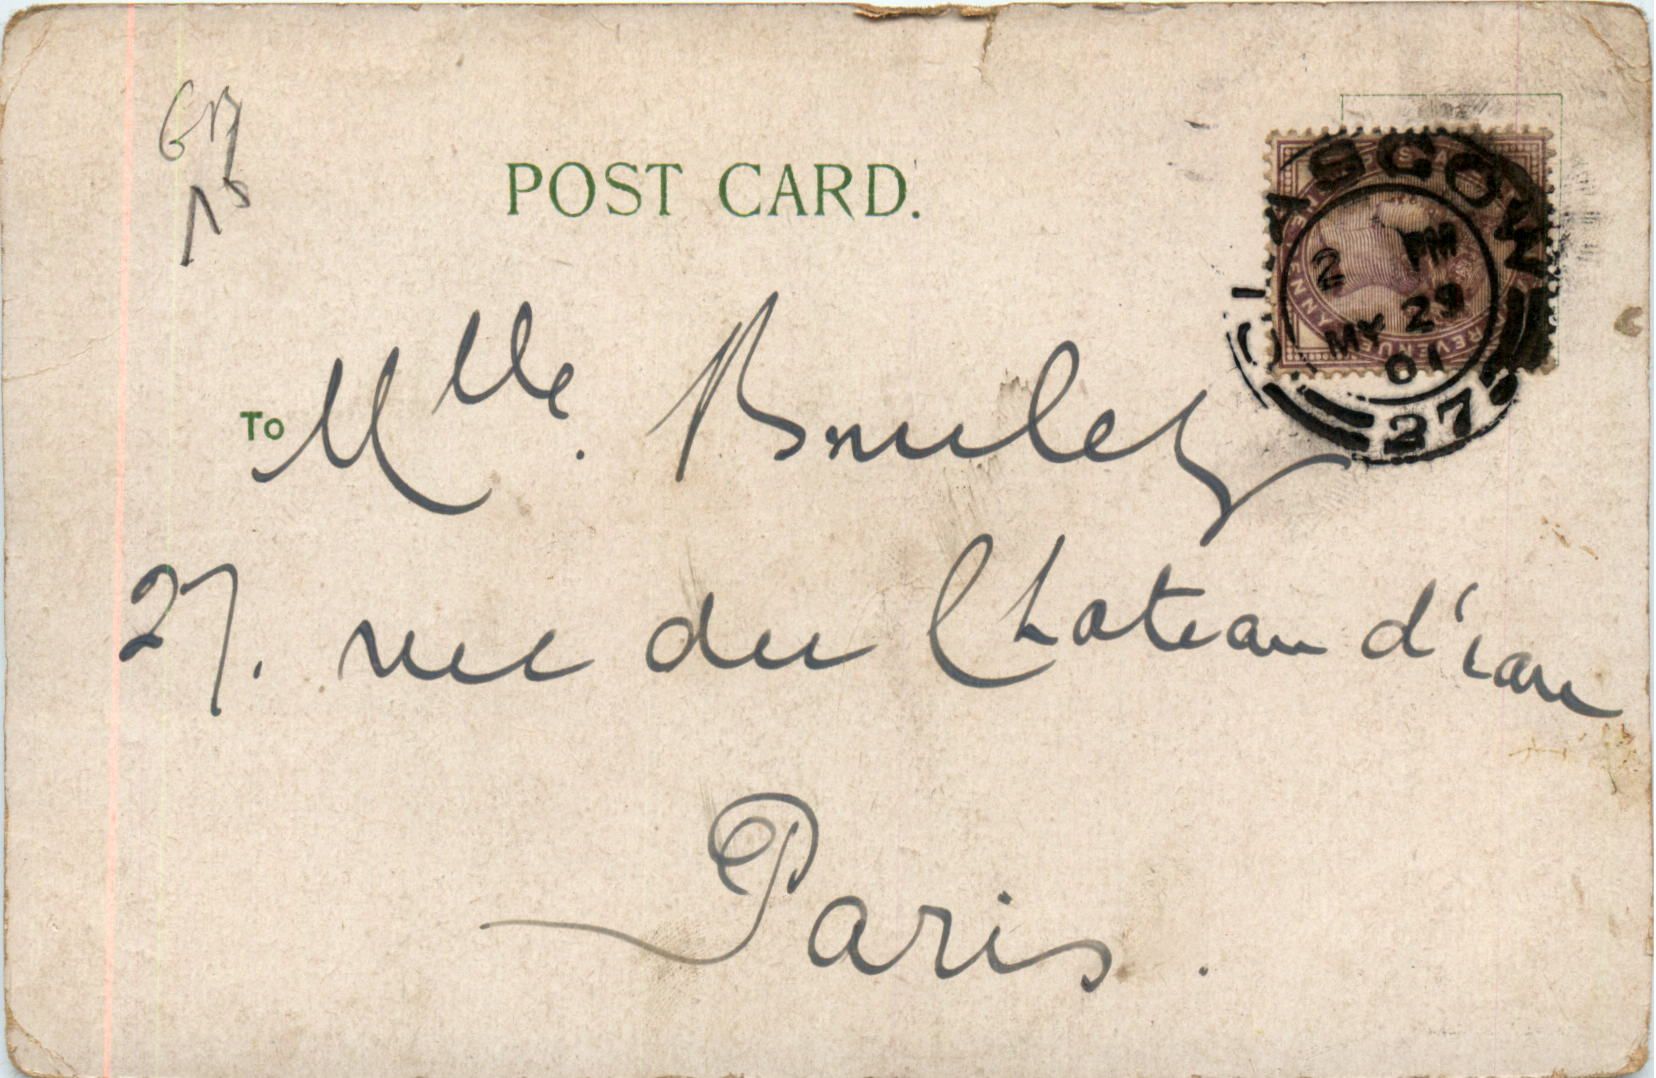 GB
15
POST CARD.
GLASGOW
2 PM
MY 29
01
275
REVENUE
To Mlle. Boulez
27. rue du Chateau d'eau
Paris.